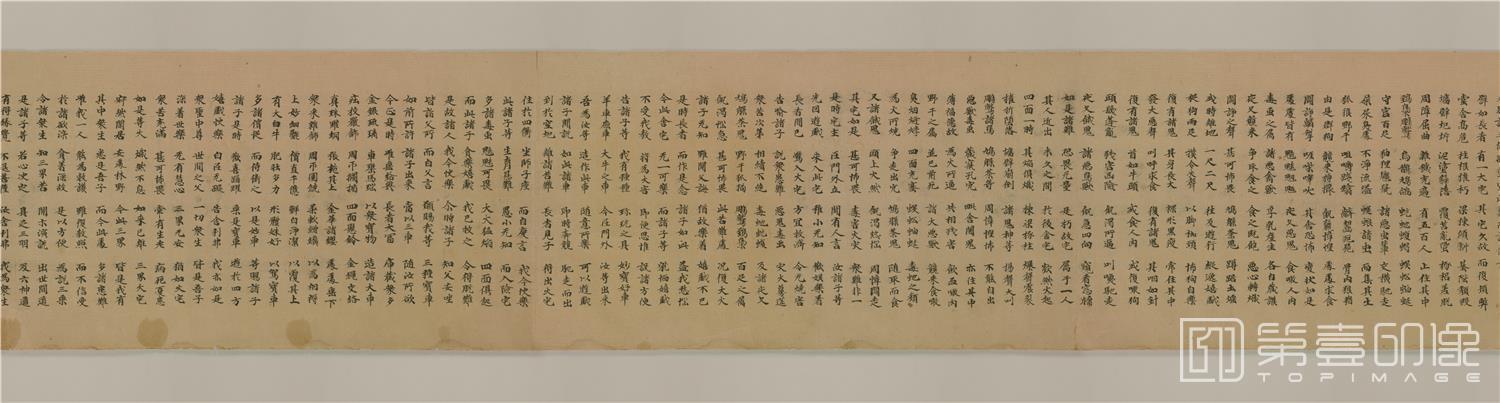 譬如長者 有一大宅 其宅久故 而復頓弊
堂舍高危 柱根摧朽 梁棟傾斜 基陛隤毀
墻壁圮坼 泥塗褫落 覆苫亂墜 椽梠差脫
周障屈曲 雜穢充遍 有五百人 止住其中
鵄梟雕鷲 烏鵲鳩鴿 蚖蛇蝮蠍 蜈蚣蚰蜒
守宮百足 狖狸鼷鼠 諸惡虫輩 交橫馳走
屎尿臭處 不淨流溢 蜣蜋諸虫 而集其上
狐狼野干 咀嚼踐蹋 齩齧死屍 骨肉狼藉
由是群狗 競來搏撮 飢羸慞惶 處處求食
鬪諍摣掣 嘊喍嘷吠 其舍恐怖 變狀如是
處處皆有 魑魅魍魎 夜叉惡鬼 食噉人肉
毒虫之屬 諸惡禽獸 孚乳產生 各自藏護
夜叉競來 爭取食之 食之既飽 惡心轉熾
鬪諍之聲 甚可怖畏 鳩槃荼鬼 蹲踞土埵
或時離地 一尺二尺 往返遊行 縱逸嬉戲
捉狗兩足 撲令失聲 以腳加頸 怖狗自樂
復有諸鬼 其身長大 裸形黑瘦 常住其中
發大惡聲 叫呼求食 復有諸鬼 其咽如針
復有諸鬼 首如牛頭 或食人肉 或復噉狗
頭髮蓬亂 殘害凶險 飢渴所逼 叫喚馳走
夜叉餓鬼 諸惡鳥獸 飢急四向 窺看窓牖
如是諸難 恐畏無量 是朽故宅 屬于一人
其人近出 未久之間 於後舍宅 歘然火起
四面一時 其焰俱熾 棟梁椽柱 爆聲震裂
摧折墮落 墻壁崩倒 諸鬼神等 揚聲大叫
雕鷲諸鳥 鳩槃荼等 周慞惶怖 不能自出
惡獸毒虫 藏竄孔穴 毗舍闍鬼 亦住其中
薄福德故 為火所逼 共相殘害 飲血噉肉
野干之屬 並已前死 諸大惡獸 競來食噉
臭烟熢㶿 四面充塞 蜈蚣蚰蜒 毒蛇之類
為火所燒 爭走出穴 鳩槃荼鬼 隨取而食
又諸餓鬼 頭上火然 飢渴熱惱 周慞悶走
其宅如是 甚可怖畏 毒害火災 眾難非一
是時宅主 在門外立 聞有人言 汝諸子等
先因遊戲 來入此宅 稚小无知 歡娛樂著
長者聞已 驚入火宅 方宜救濟 令无燒害
告喻諸子 說眾患難 惡鬼毒虫 災火蔓莚
眾苦次第 相續不絕 毒蛇蚖蝮 及諸夜叉
鳩槃荼鬼 野干狐狗 雕鷲鵄梟 百足之屬
飢渴惱急 甚可怖畏 此苦難處 況復大火
諸子无知 雖聞父誨 猶故樂著 嬉戲不已
是時長者 而作是念 諸子如此 益我愁惱
今此舍宅 无一可樂 而諸子等 躭湎嬉戲
不受我教 將為火害 即便思惟 設諸方便
告諸子等 我有種種 珍玩之具 妙寶好車
羊車鹿車 大牛之車 今在門外 汝等出來
吾為汝等 造作此車 隨意所樂 可以遊戲
諸子聞說 如此諸車 即時奔競 馳走而出
到於空地 離諸苦難 長者見子 得出火宅
住於四衢 坐師子座 而自慶言 我今快樂
此諸子等 生育甚難 愚小无知 而入險宅
多諸毒虫 魑魅可畏 大火猛焰 四面俱起
而此諸子 貪樂嬉戲 我已救之 令得脫難
是故諸人 我今快樂 尒時諸子 知父安坐
皆詣父所 而白父言 願賜我等 三種寶車
如前所許 諸子出來 當以三車 隨汝所欲
今正是時 唯垂給與 長者大富 庫藏眾多
金銀琉璃 車璖馬瑙 以眾寶物 造諸大車
莊校嚴飾 周匝欄楯 四面懸鈴 金繩交絡
真珠羅網 張施其上 金華諸瓔 處處垂下
眾綵雜飾 周匝圍繞 柔軟繒纊 以為茵蓐
上妙細㲲 價直千億 鮮白淨潔 以覆其上
有大白牛 肥壯多力 形體姝好 以駕寶車
多諸儐從 而侍衛之 以是妙車 等賜諸子
諸子是時 歡喜踊躍 乘是寶車 遊於四方
嬉戲快樂 自在无礙 告舍利弗 我亦如是
眾聖中尊 世間之父 一切眾生 皆是吾子
深著世樂 无有慧心 三界无安 猶如火宅
眾苦充滿 甚可怖畏 常有生老 病死憂患
如是等火 熾然不息 如來已離 三界火宅
寂然閑居 安處林野 今此三界 皆是我有
其中眾生 悉是吾子 而今此處 多諸患難
唯我一人 能為救護 雖復教詔 而不信受
於諸欲染 貪著深故 是以方便 為說三乘
令諸眾生 知三界苦 開示演說 出世間道
是諸子等 若心決定 具足三明 及六神通
有得緣覺 不退菩薩 汝舍利弗 我為眾生
第壹印像
TOPIMAGE